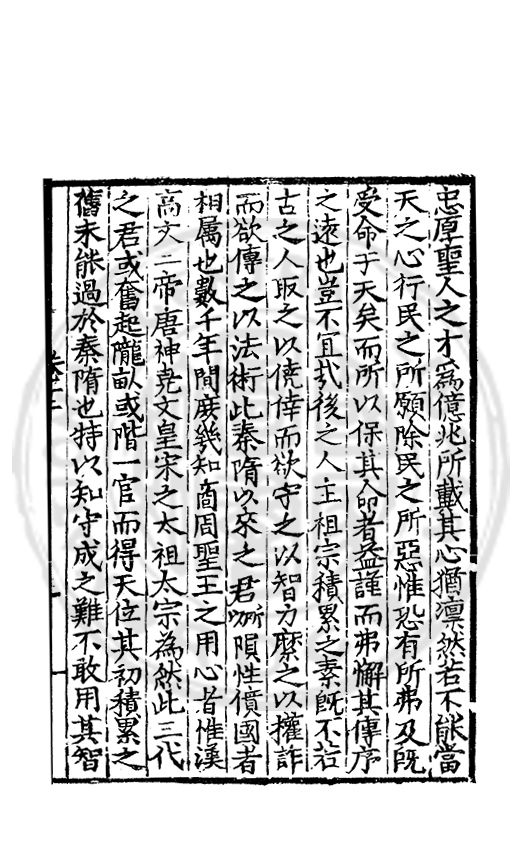 忠厚聖人之才為億兆所戴其心猶凜然若不能當
天之心行民之所願除民之所惡惟恐有所弗及既
受命于天矣而所以保其命者益謹而弗懈其傳序
之遠也豈不宜哉後之人主祖宗積累之素既不若
古之人取之以僥倖而欲守之以智力縻之以權詐
而欲傳之以法術此秦隋以來之君所以隕性僨國者
相属也數千年間庶幾知商周聖王之用心者惟漢
高文二帝唐神堯文皇宋之太祖太宗為然此三代
之君或奮起隴畝或階一官而得天位其初積累之
舊未能過於秦隋也特以知守成之難不敢用其智
卷之二